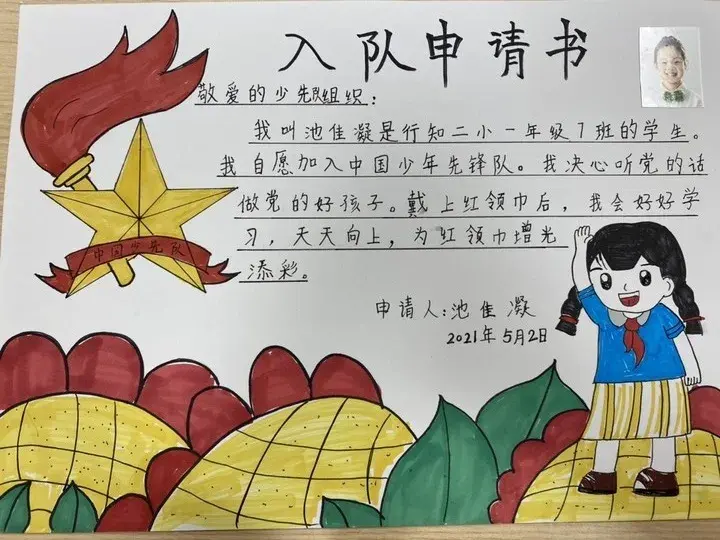 入队申请书
敬爱的少先队组织：
我叫池佳凝是行知二小一年级7班的学生。
我自愿加入中国少年先锋队。我决心听党的话
做党的好孩子。戴上红领巾后，我会好好学
习，天天向上，为红领巾增光
添彩。
中国少先队
申请人：池佳凝
2021年5月2日